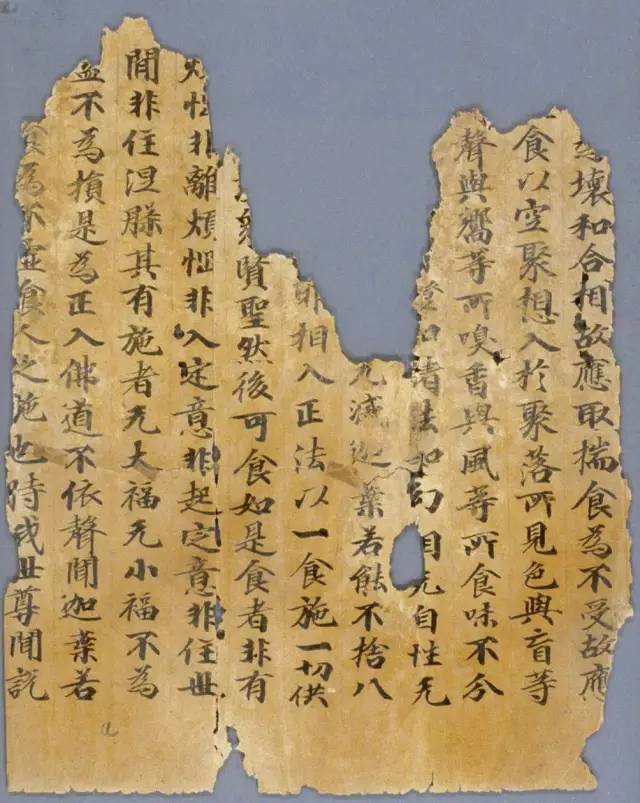 為壞和合相故應取揣食為不受故應
食以空聚想入於聚落所見色與盲等
聲與嚮等所嗅香與風等所食味不分
證知諸法如幻相无自性无
无滅迦葉若能不捨八
耶相入正法以一食施一切供
眾賢聖然後可食如是食者非有
煩惱非離煩惱非入定意非起定意非住世
間非住涅槃其有施者无大福无小福不為
益不為損是為正入佛道不依聲聞迦葉若
食為不空食人之施也時我世尊聞說